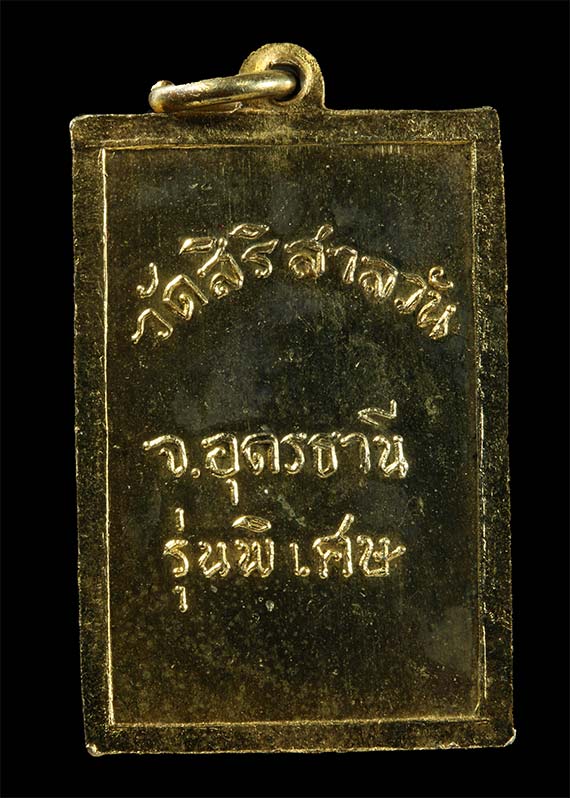 วัดสิริสาลวัน
จ.อุดรธานี
รุ่นพิเศษ